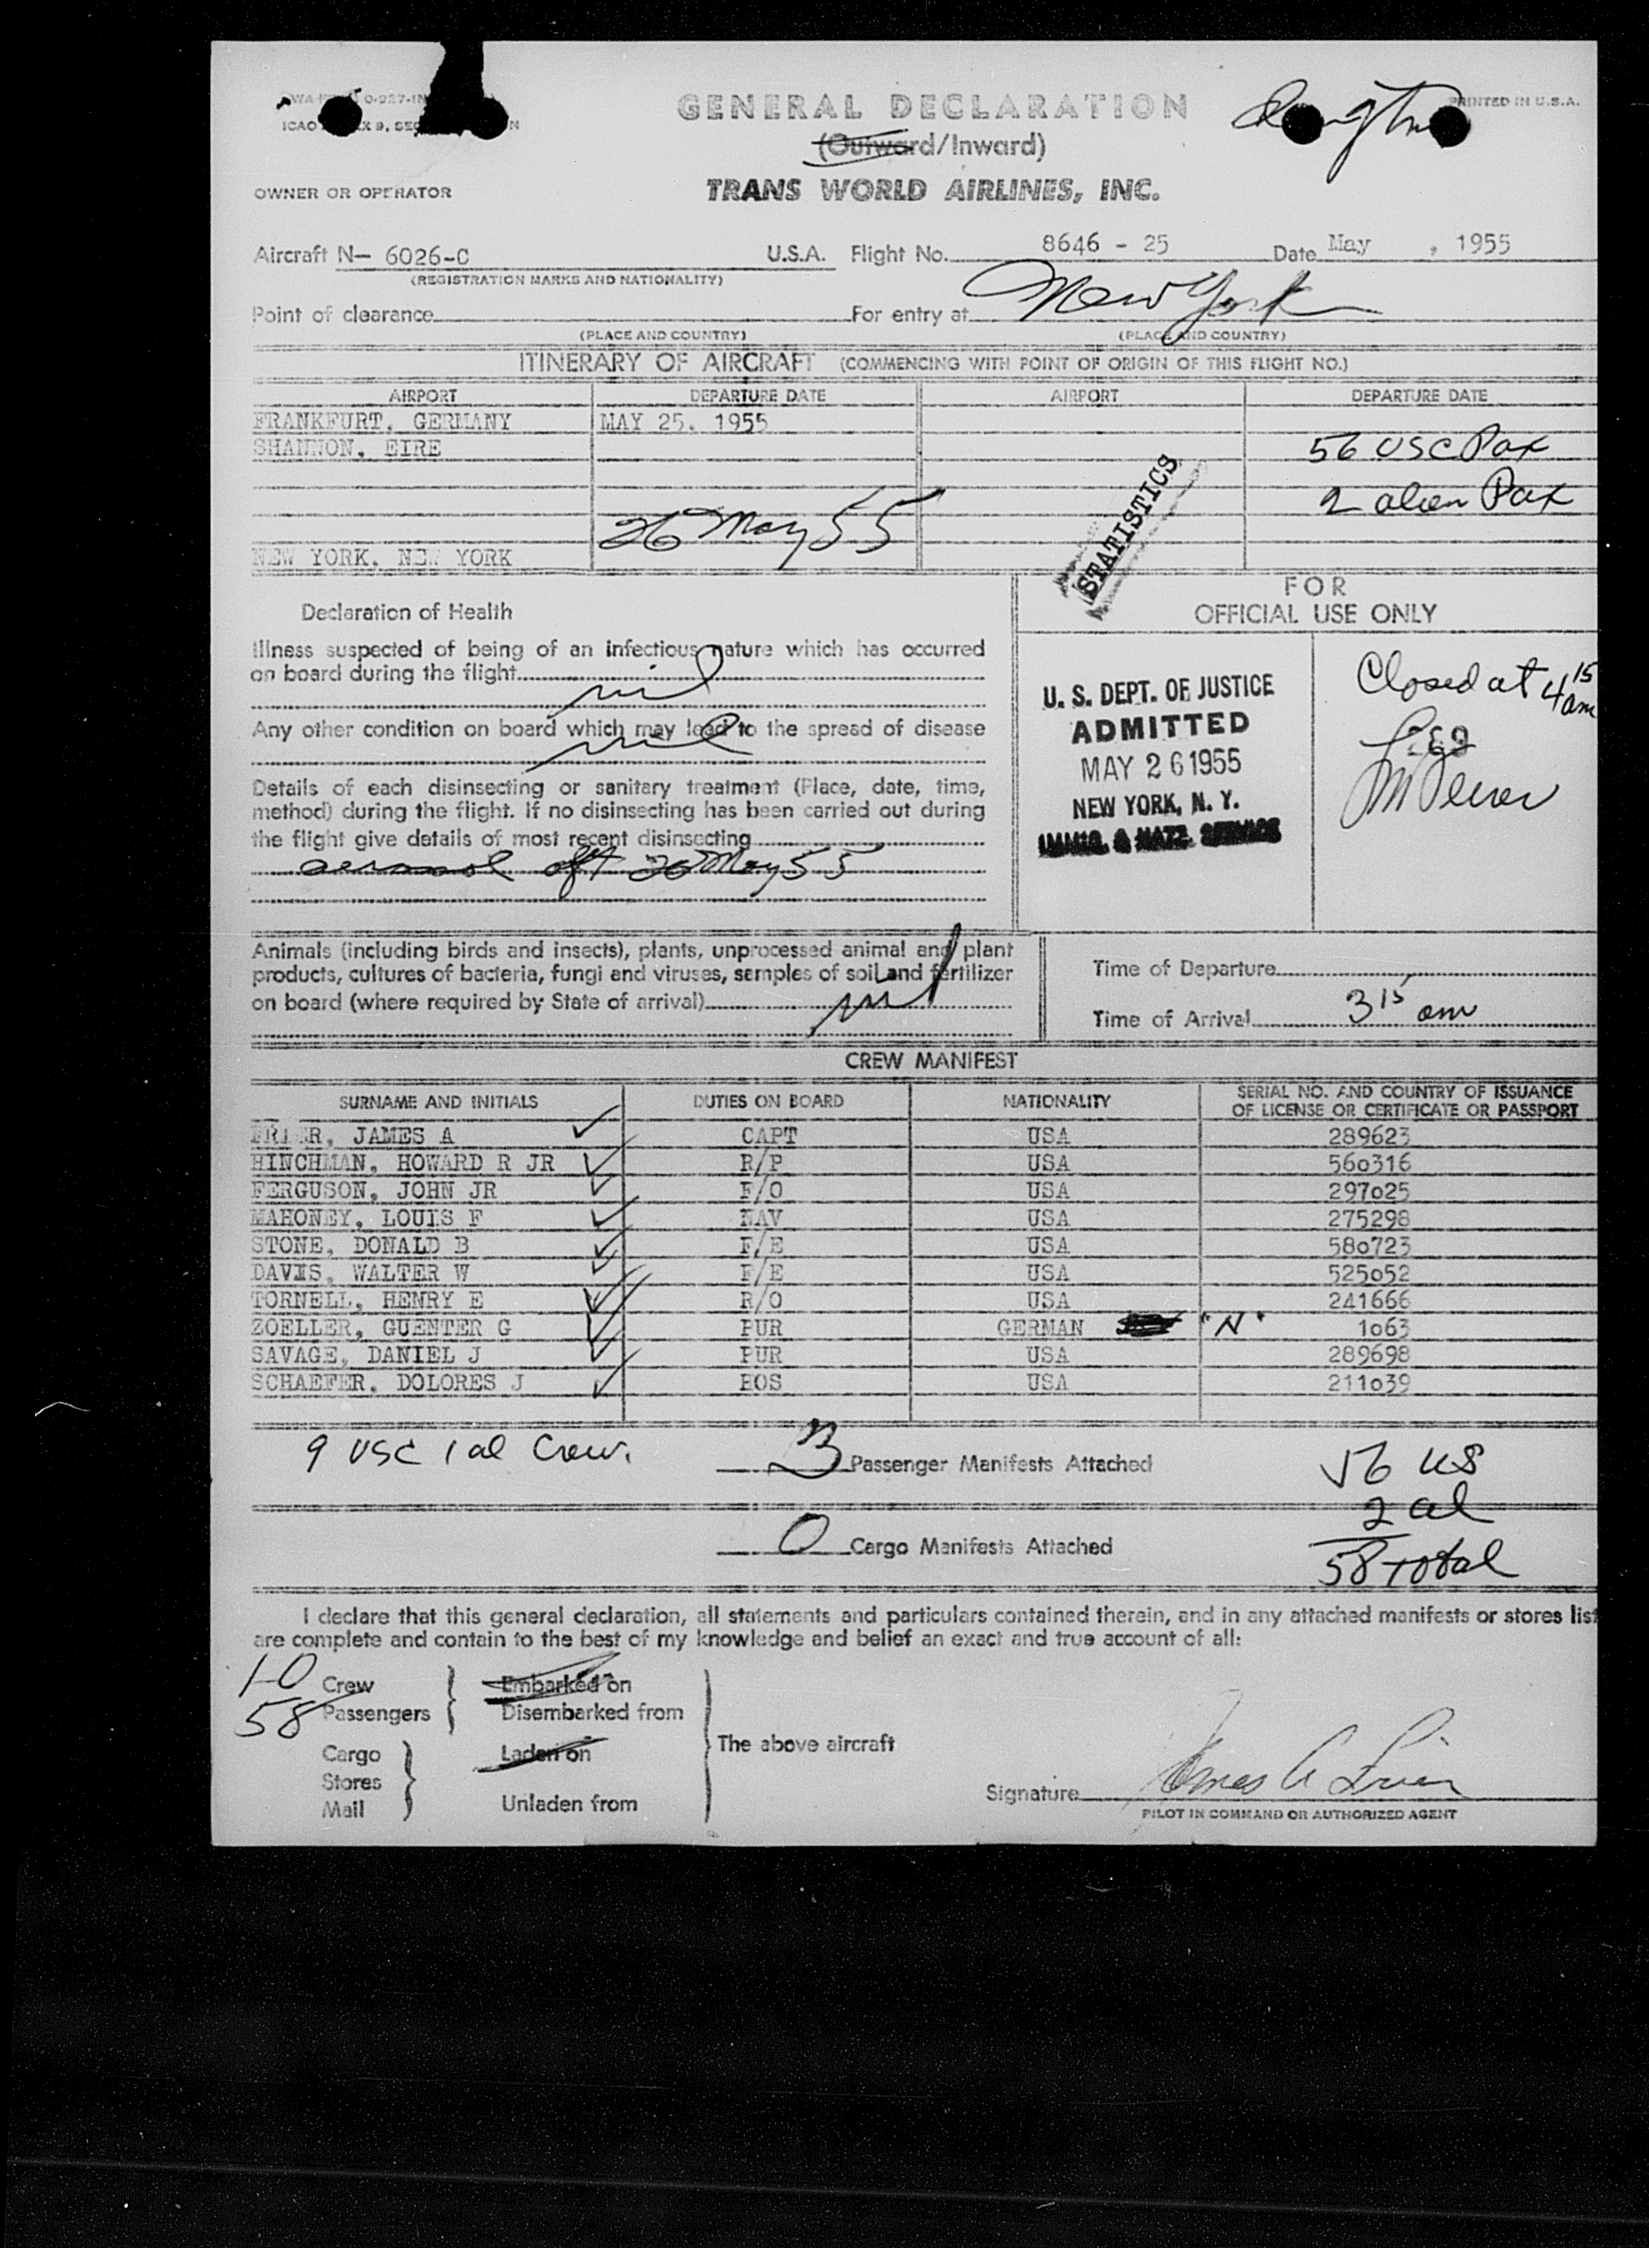 GENERAL DECLARATION
PRINTED IN U.S.A.
(Outward/Inward)
OWNER OR OPERATOR
TRANS WORLD AIRLINES, INC.
Aircraft N- 6026-C U.S.A. Flight No. 8646 - 25 Date May , 1955
(REGISTRATION MARKS AND NATIONALITY)
Point of clearance For entry at New York
(PLACE AND COUNTRY) (PLACE AND COUNTRY)
ITINERARY OF AIRCRAFT (COMMENCING WITH POINT OF ORIGIN OF THIS FLIGHT NO.)
AIRPORT DEPARTURE DATE AIRPORT DEPARTURE DATE
FRANKFURT, GERMANY MAY 25. 1955
SHANNON, EIRE 56 USC Pax
2 alien Pax
26 May 55
STATISTICS
NEW YORK, NEW YORK
Declaration of Health
Illness suspected of being of an infectious nature which has occurred
on board during the flight
nil
Any other condition on board which may lead to the spread of disease
nil
Details of each disinsecting or sanitary treatment (Place, date, time,
method) during the flight. If no disinsecting has been carried out during
the flight give details of most recent disinsecting
aerosol aft 26 May 55
FOR
OFFICIAL USE ONLY
U. S. DEPT. OF JUSTICE
ADMITTED
MAY 26 1955
NEW YORK, N. Y.
IMMIG. & NATZ. SERVICE
Closed at 4 15 am
269
Animals (including birds and insects), plants, unprocessed animal and plant
products, cultures of bacteria, fungi and viruses, samples of soil and fertilizer
on board (where required by State of arrival) nil
Time of Departure
Time of Arrival 3 15 am
CREW MANIFEST
SURNAME AND INITIALS DUTIES ON BOARD NATIONALITY SERIAL NO. AND COUNTRY OF ISSUANCE
OF LICENSE OR CERTIFICATE OR PASSPORT
JAMES A CAPT USA 289623
HINCHMAN, HOWARD R JR R/P USA 560316
FERGUSON, JOHN JR F/O USA 297025
MAHONEY, LOUIS F NAV USA 275298
STONE, DONALD B F/E USA 580723
DAVIS, WALTER W F/E USA 525052
TORNELL, HENRY E R/O USA 241666
ZOELLER, GUENTER G PUR GERMAN "N" 1063
SAVAGE, DANIEL J PUR USA 289698
SCHAEFER, DOLORES J HOS USA 211039
9 USC 1 al Crew.
3 Passenger Manifests Attached
56 US
2 al
0 Cargo Manifests Attached
58 total
I declare that this general declaration, all statements and particulars contained therein, and in any attached manifests or stores list
are complete and contain to the best of my knowledge and belief an exact and true account of all:
10 Crew Embarked on
58 Passengers Disembarked from
Cargo Laden on The above aircraft
Stores
Mail Unladen from
Signature
PILOT IN COMMAND OR AUTHORIZED AGENT